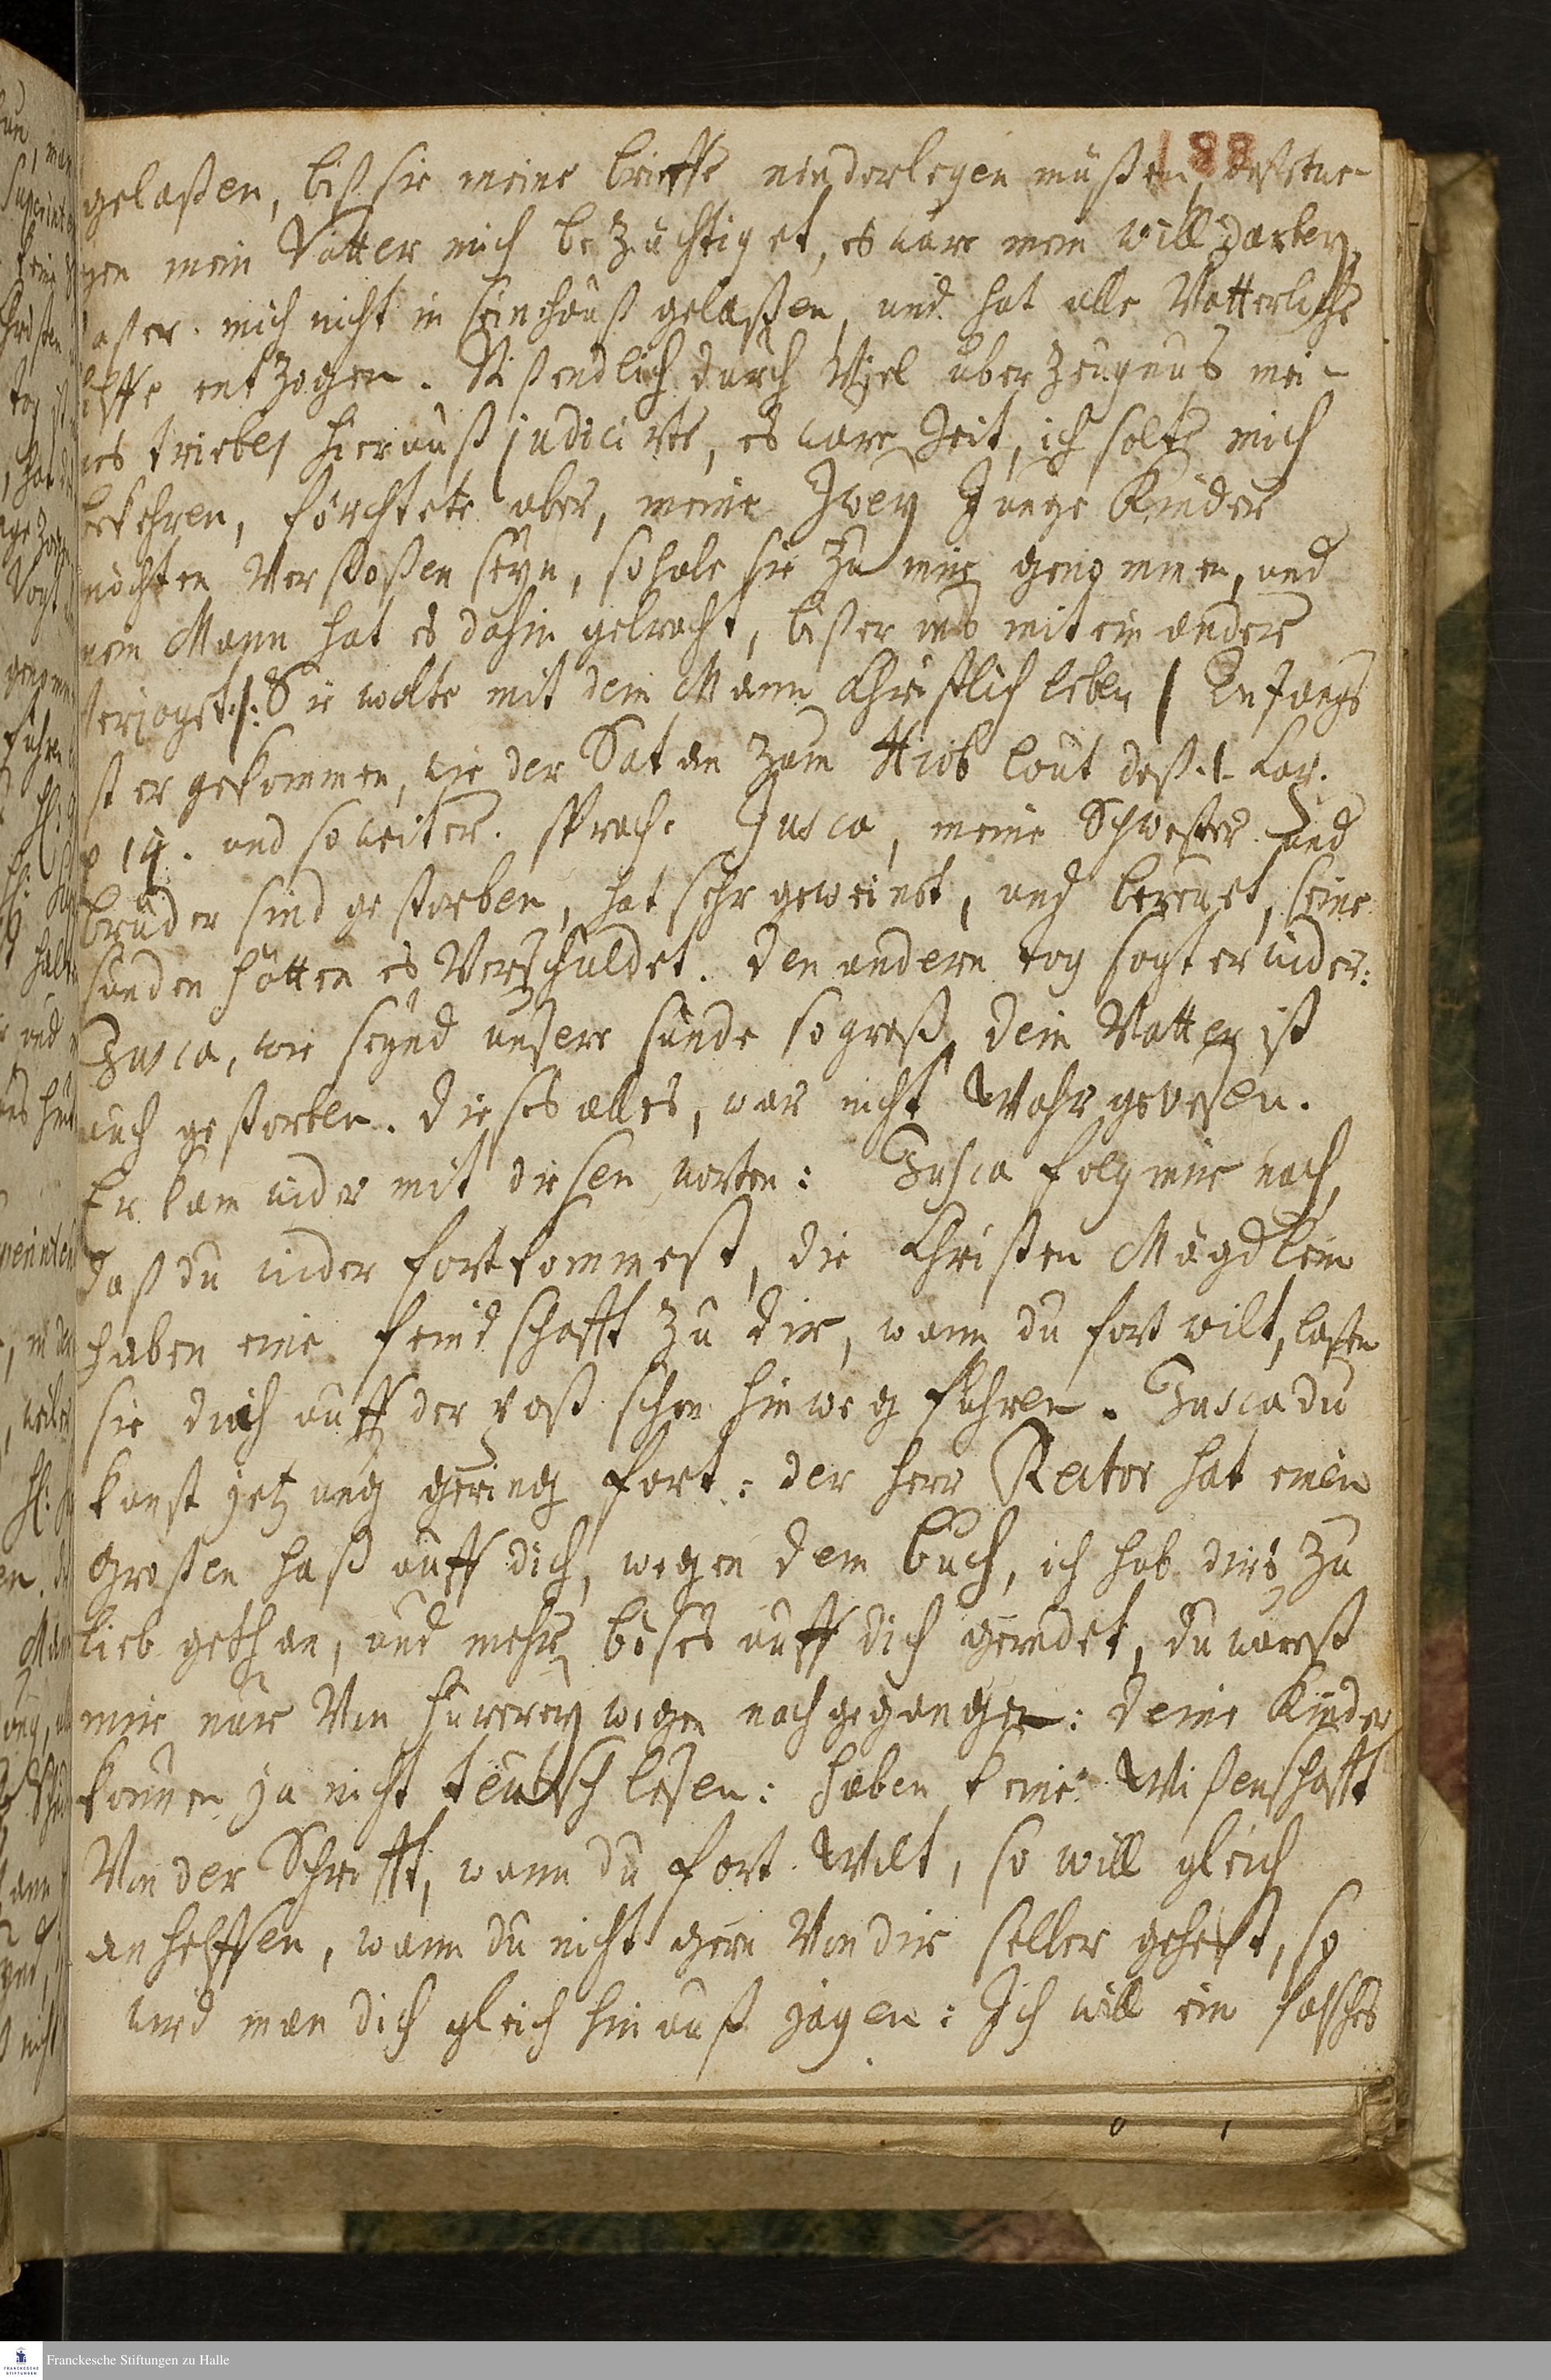 188
gelaßen, biß sie meine brieffe niederlegen müßen, deßetwe-
gen mein Vatter mich bezüchtiget, es wäre mein will darbey,
daß er mich nicht in sein hauß gelaßen, und hat alle Vatterliche
hilffe entzogen. Biß endlich durch Viel überzeugnus mei-
nes triebes hierauß judicirte, es wäre Zeit, ich solte mich
bekehren, förchtete aber, meine Zwey Junge Kinder
möchten Verstoßen seyn, so habe sie zu mir genommen, und
mein Mann hat es dahin gebracht, biß er uns mit ein ander
verjaget /: Sie wolte mit dem Mann Christlich leben / Anfangs
ist er gekommen, wie der Satan zum Hiob laut deß 1. Cap.
p 14. und so weiter. sprach: Jusca, meine Schwester und
brüder sind gestorben, hat sehr geweinet, und bereuet, seine
sünden hätten es Verschuldet. den andern tag sagt er wider:
Jusca, wie seynd unsere sünde so groß, dein Vatter ist
auch gestorben. dieses alles, war nicht Wahr gewesen.
Er kam wider mit diesen worten: Jusca folg mir nach,
daß du wider fortkommest, die Christen Mägdlein
haben eine feindschafft zu dir, wann du fort wilt, laßen
sie dich auff der post schon hinweg führen. Jusca du
kanst jetz ung gering fort: der herr Rector hat einen
Großen haß auff dich, wegen dem buch, ich hab dirs zu
lieb gethan, und mehr böses auff dich geredet, du warest
mir nur Von hurerey wegen nachgegangen: deine Kinder
können ja nicht teutsch lesen: haben keine Wißenschafft
Von der Schrifft, wann du fort Wilt, so will gleich
anhelffen, wann du nicht gern Von dir selber gehest, so
wird man dich gleich hinauß jagen: Ich will ein falsches
Franckesche Stiftungen zu Halle